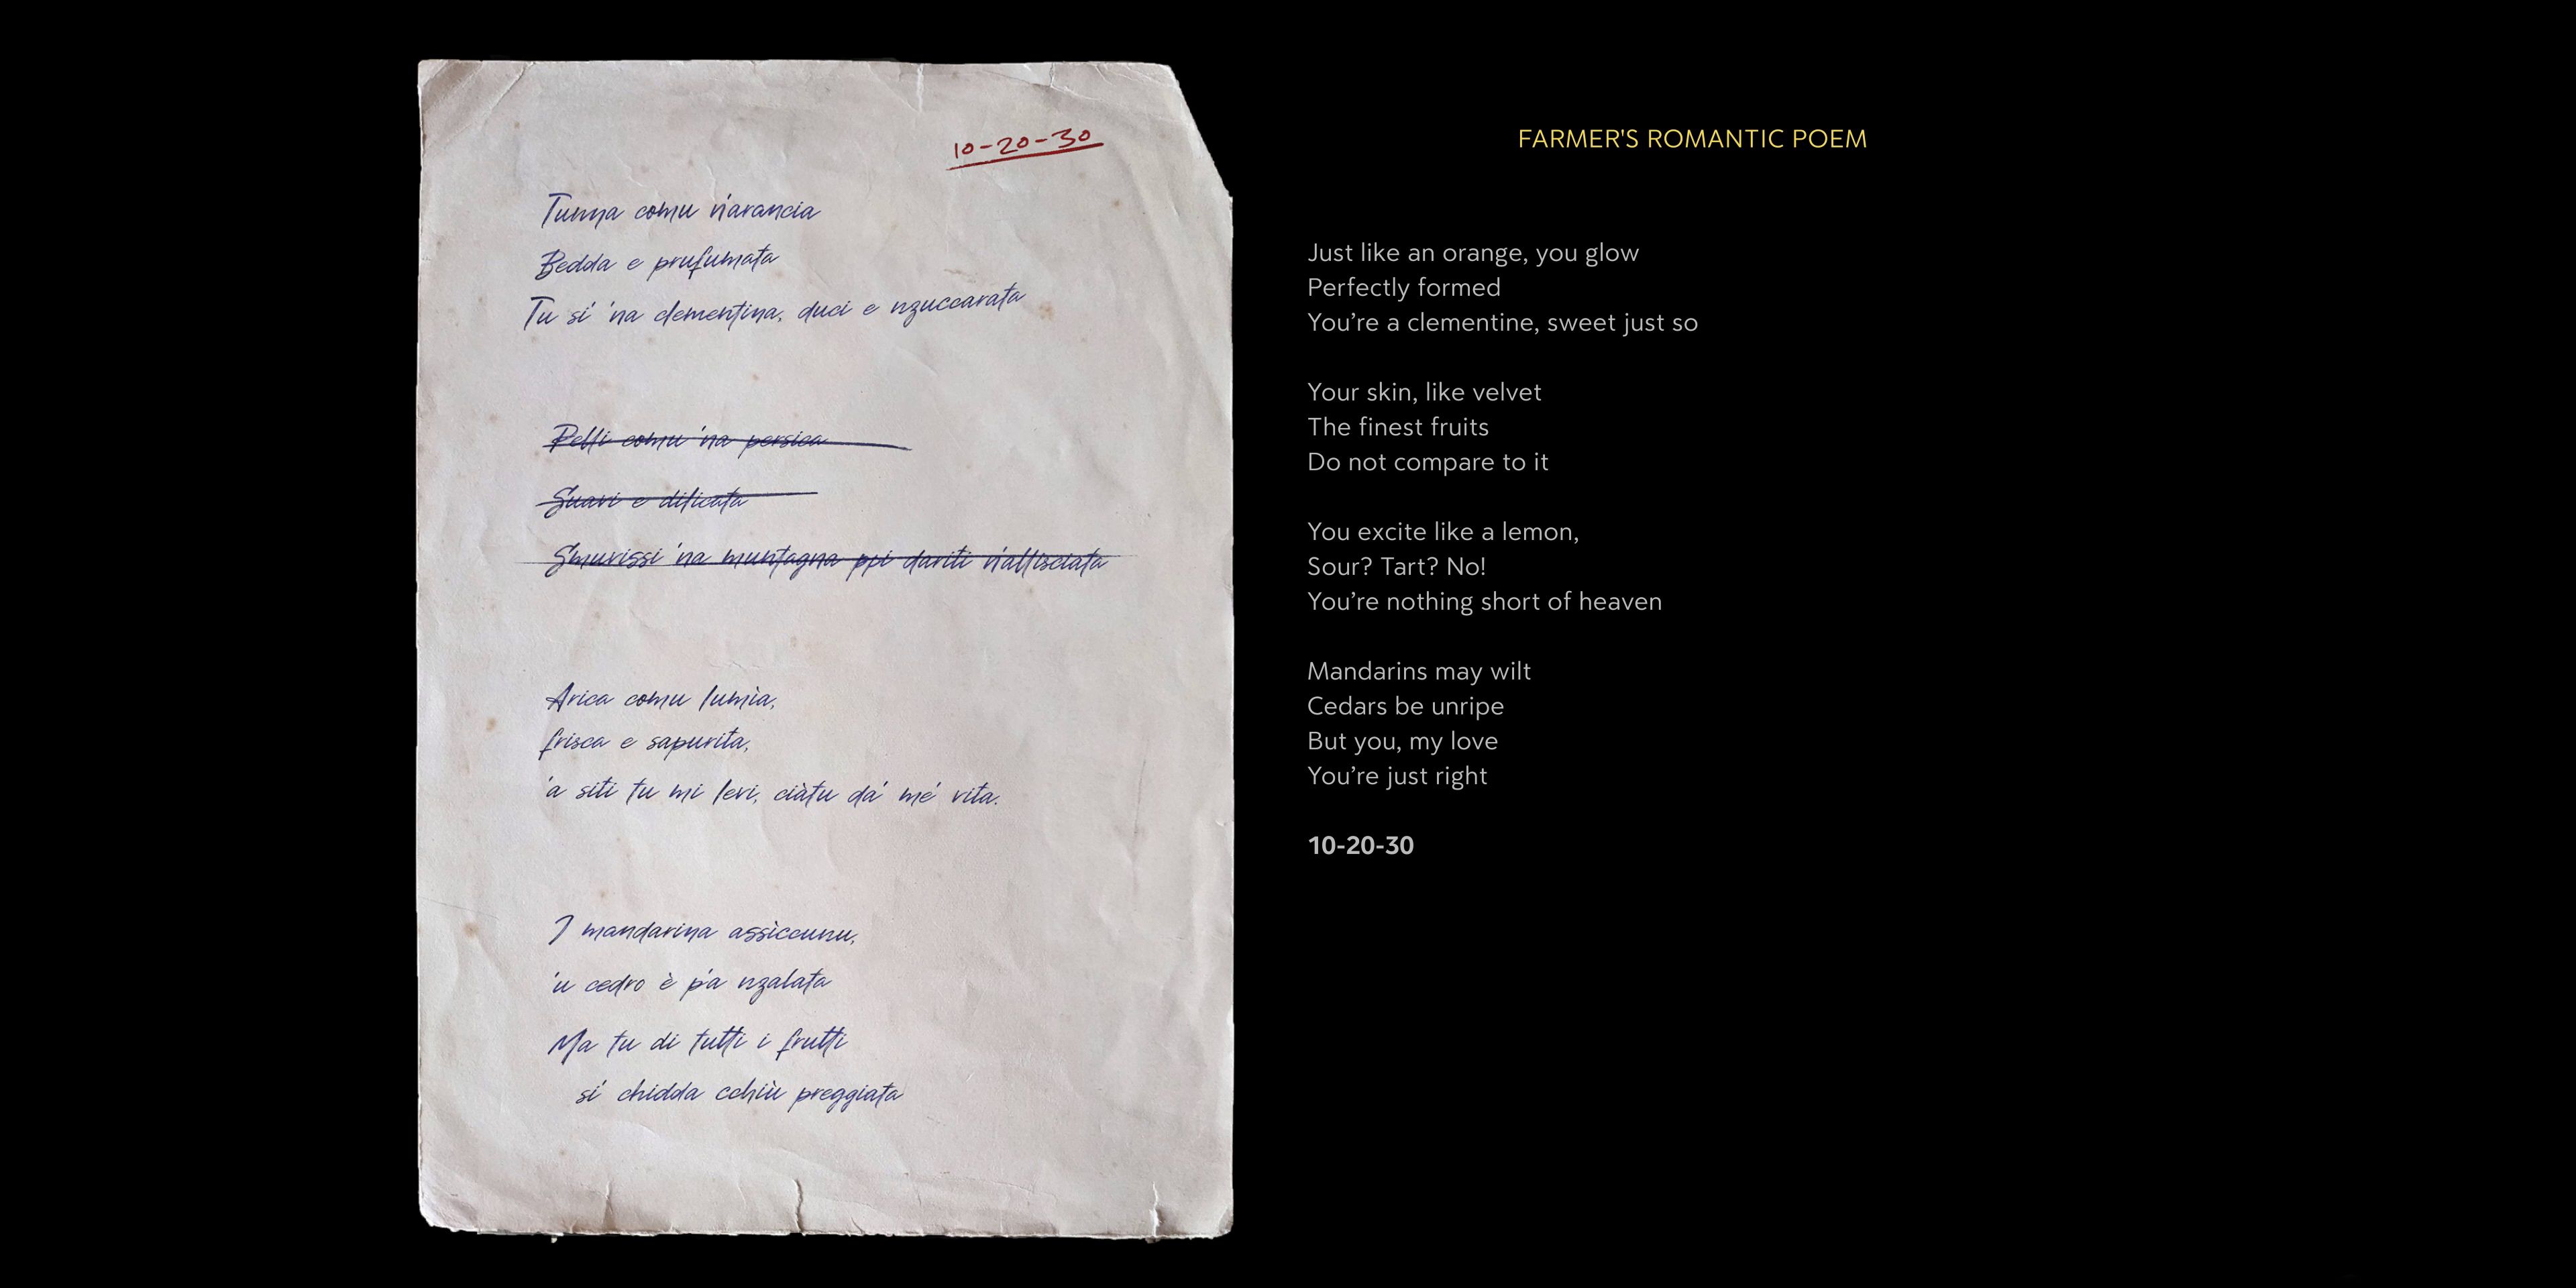 10-20-30
Tunna comu n'arancia
Bedda e prufumata
Tu si' 'na clementina, duci e nzuccarata
Pelli comu 'na persica
Suavi e dilicata
Smurissi 'na muntagna ppi dariti n'allisciata
Arica comu lumìa,
frisca e sapurita,
'a siti tu mi levi, ciàtu dà' mé' vita.
I mandarina assìccunu,
'u cedro è p'a nzalata
Ma tu di tutti i frutti
si' chidda cchiù preggiata
FARMER'S ROMANTIC POEM
Just like an orange, you glow
Perfectly formed
You're a clementine, sweet just so
Your skin, like velvet
The finest fruits
Do not compare to it
You excite like a lemon,
Sour? Tart? No!
You're nothing short of heaven
Mandarins may wilt
Cedars be unripe
But you, my love
You're just right
10-20-30